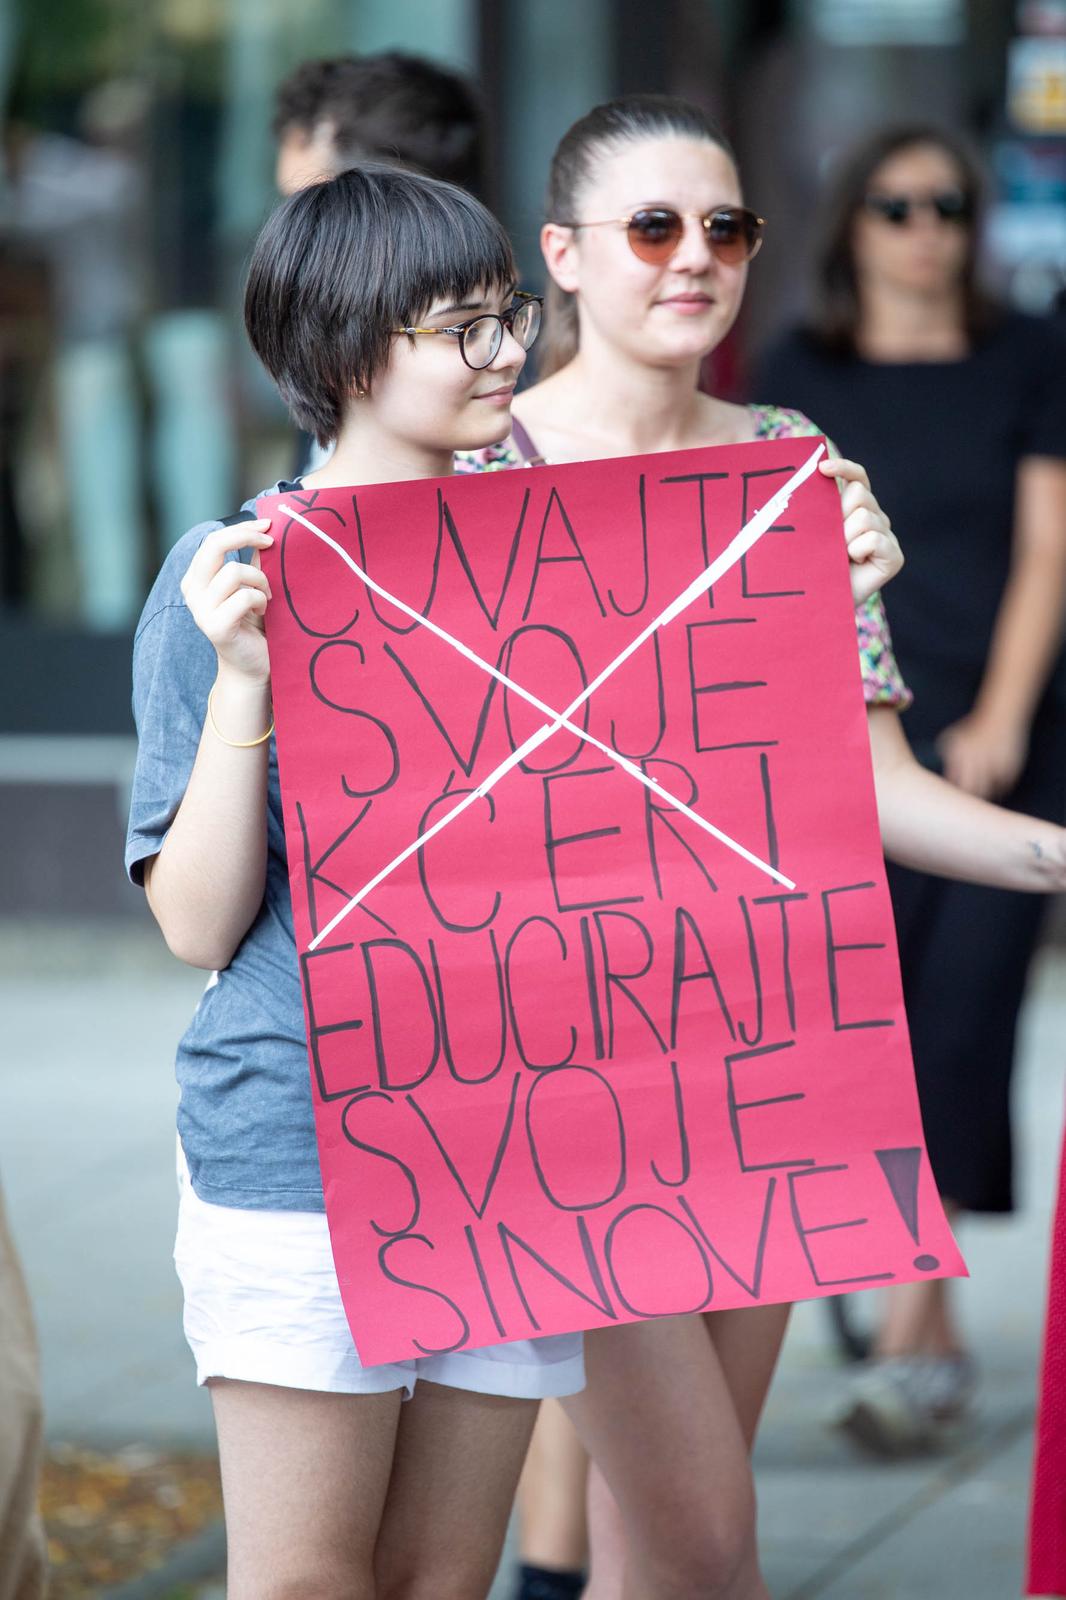 ČUVAJTE
SVOJE
KĆERI
EDUCIRAJTE
SVOJE
SINOVE!